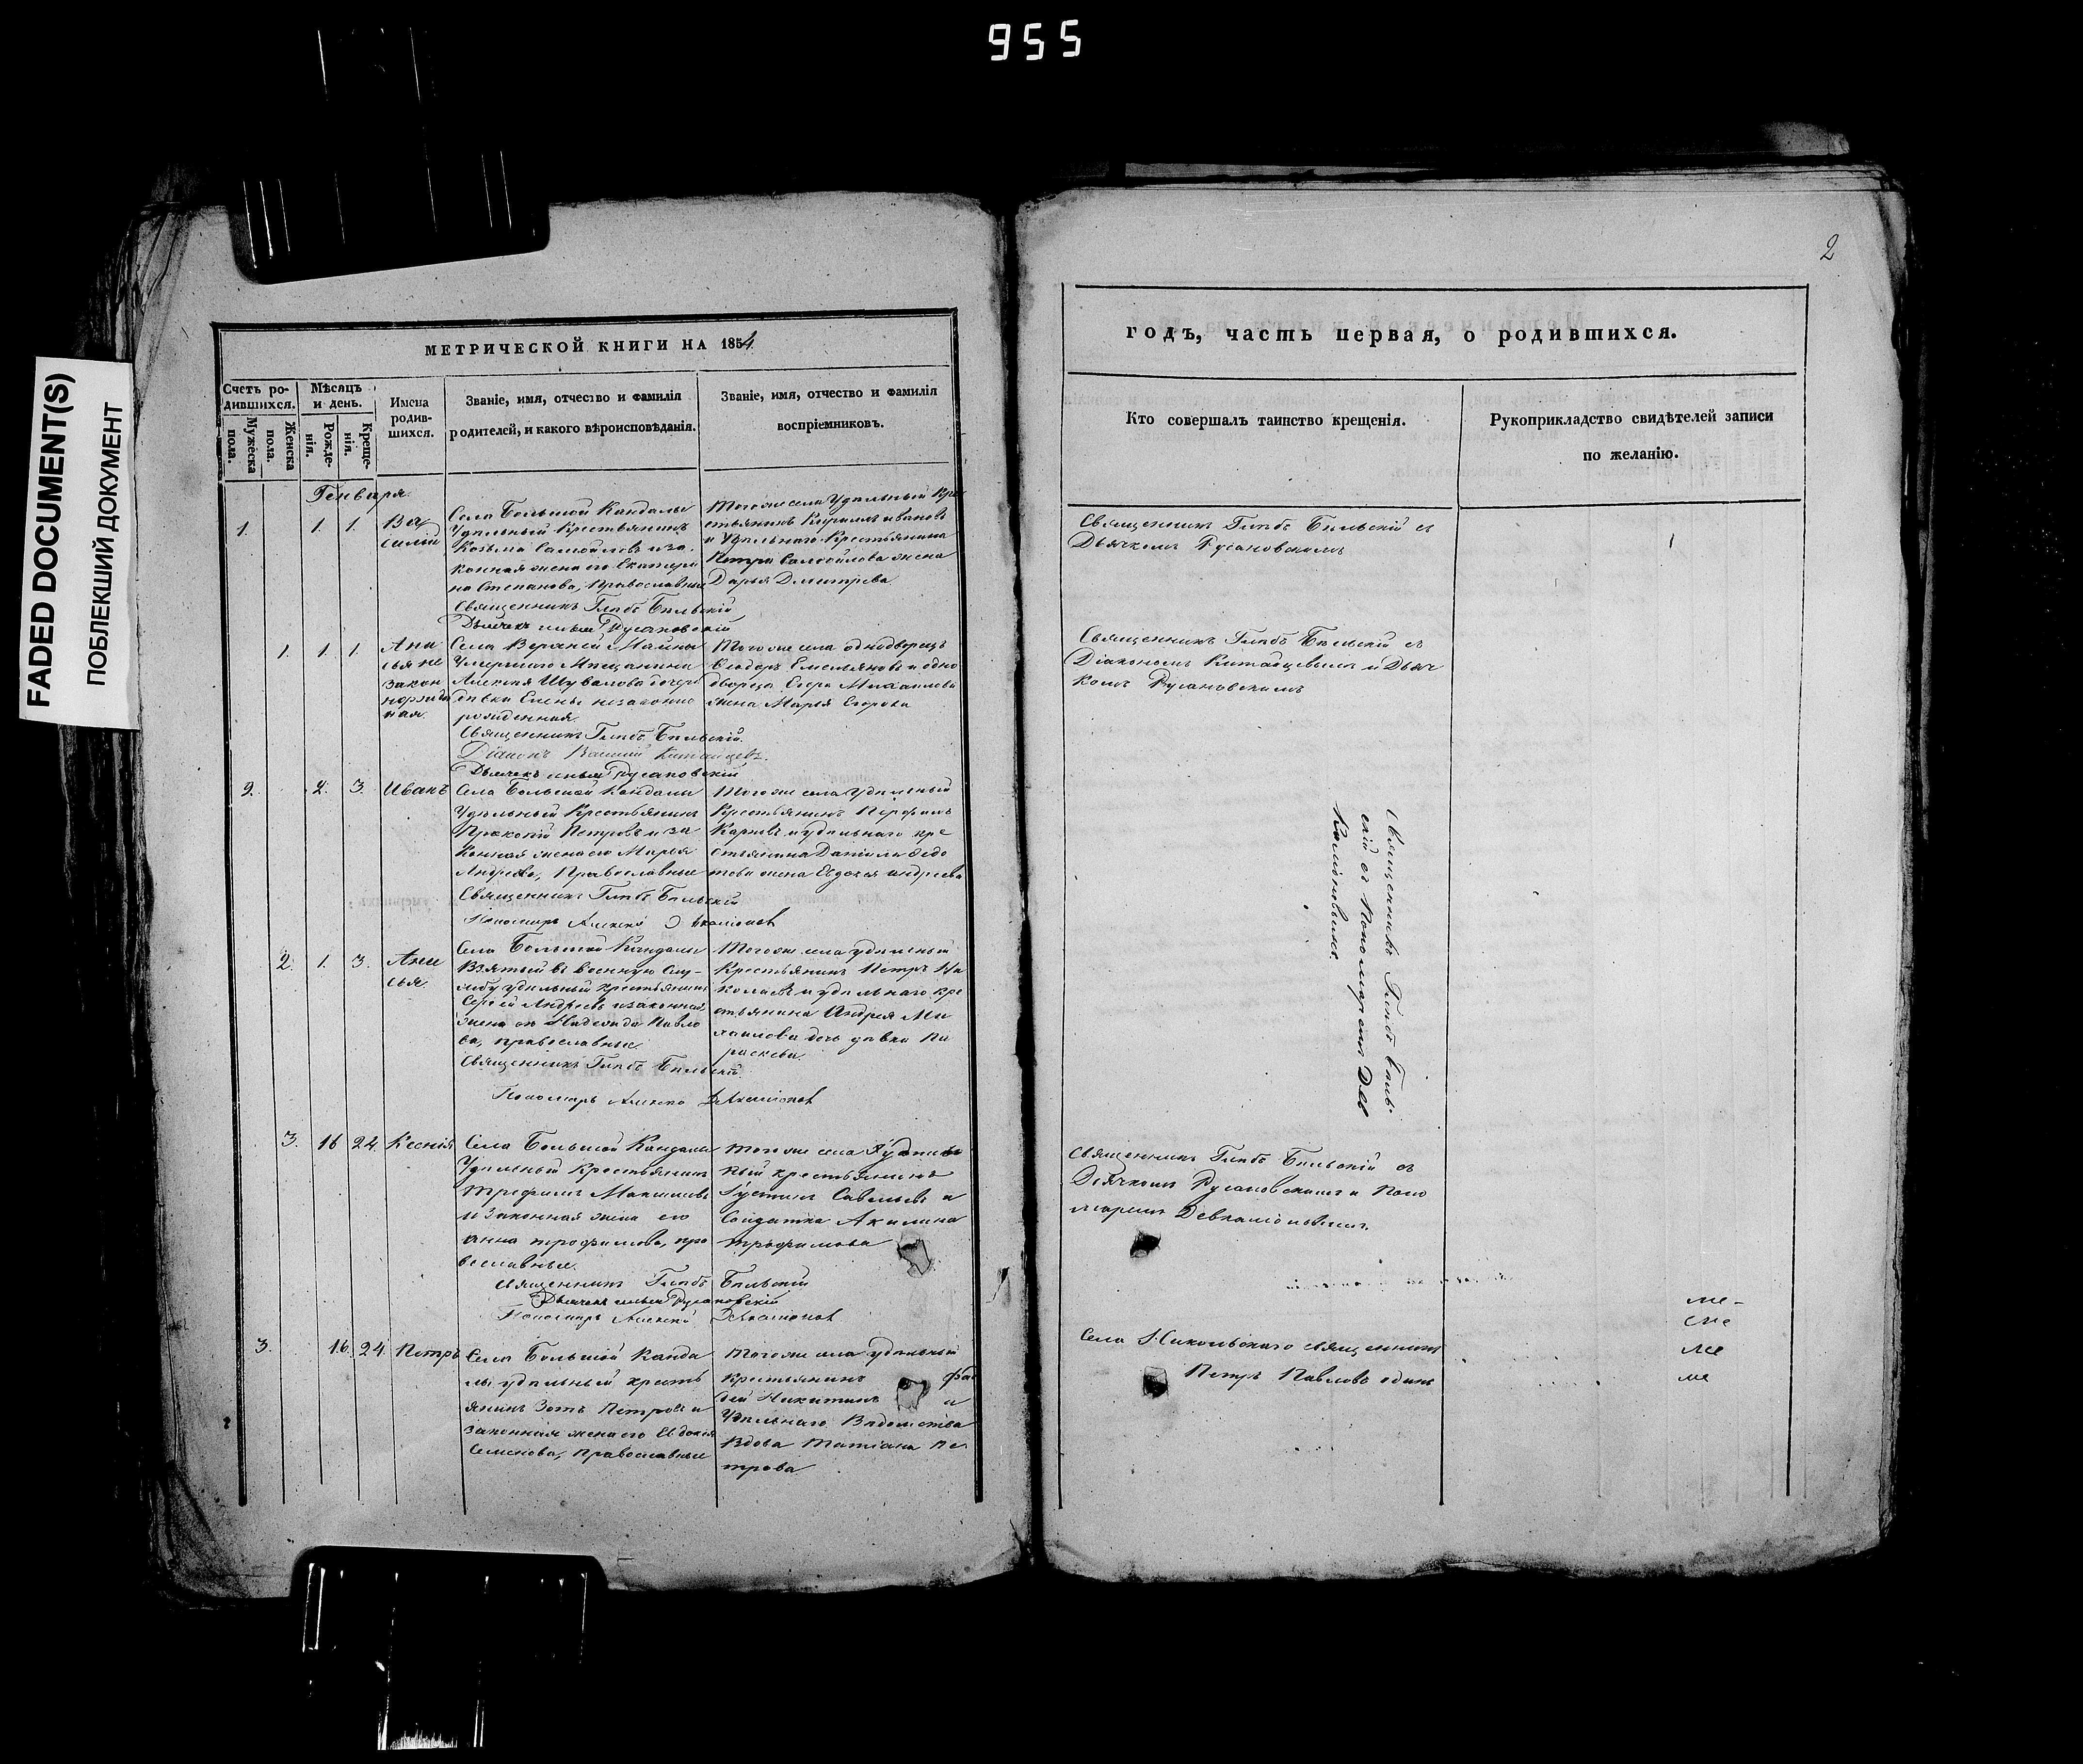 955
FADED DOCUMENT(S)
ПОБЛЕКШИЙ ДОКУМЕНТ
МЕТРИЧЕСКОЙ КНИГИ НА 1854
Счетъ ро-
дившихся.
Мужеска
пола.
Женска
пола.
Мѣсяцъ
и день.
Рожде-
нія.
Креще-
нія.
Имена
родив-
шихся.
Званіе, имя, отчество и фамилія
родителей, и какого вѣроисповѣданія.
Званіе, имя, отчество и фамилія
воспріемниковъ.
Генваря
1. 1. 1.
Ва
силій
Села Большой Кандалы
Удѣльный Крестьянинъ
Козьма Самойловъ и за
конная жена его Екатери
на Степанова, Православные
Священникъ Глѣбъ Бѣльскій
Дьячекъ Русановскій
Тогоже села Удѣльный Кре
стьянинъ Кириллъ Ивановъ
и Удѣльнаго Крестьянина
Петра Самойлова жена
Дарья Дмитрева
1. 1. 1.
Ани
сья не
закон
норожден
ная.
Села Верхней Майны
Умершаго Мѣщанина
Алексея Шувалова дочери
дѣвки Елены незаконно
рожденная.
Священникъ Глѣбъ Бѣльскій
Діаконъ Василій Китайцевъ.
Дьячекъ Русановскій
Тогоже села однодворецъ
Ѳеодоръ Емельяновъ и одно
дворца Егора Михаилова
жена Марья Егорова
2. 2. 3.
Иванъ
Села Большой Кандалы
Удѣльный Крестьянинъ
Прокопій Петровъ и за
конная жена его Марья
Андреева, Православные
Священникъ Глѣбъ Бѣльскій
Пономарь Алексей Девкаліоновъ
Тогоже села Удѣльный
Крестьянинъ Перфилъ
Карповъ и удѣльнаго кре
стьянина Данилы Ѳедо
това жена Евдокья Андреева
2. 1. 3.
Ани
сья.
Села Большой Кандалы
Взятый въ военную слу-
жбу удѣльный крестьянинъ
Сергей Андреевъ и законная
жена его Надежда Павло
ва, православные.
Священникъ Глѣбъ Бѣльскій.
Пономарь Алексей Девкаліоновъ
Тогоже села удѣльный
Крестьянинъ Петръ Ни
колаевъ и удѣльнаго кре
стьянина Андрея Ми
хаилова дочь дѣвка Па
раскева.
3. 16 24
Ксенія
Села Большой Кандалы
Удѣльный Крестьянинъ
Трофимъ Максимовъ
и Законная жена его
Анна Трофимова, пра
вославные.
Священникъ Глѣбъ Бѣльскій
Дьячекъ Русановскій
Пономарь Алексей Девкаліоновъ
Тогоже села Удѣль
ный крестьянинъ
Іустинъ Савельевъ и
Солдатка Акилина
Трофимова
3. 16. 24
Петръ
Села Большой Канда
лы удѣльный кресть
янинъ Зотъ Петровъ и
законная жена его Евдокія
Семенова, Православные
Тогоже села удѣльный
Крестьянинъ Фад
дей Никитинъ и
Удѣльнаго Вѣдомства
Вдова Татіана Пе
трова
2
годъ, часть первая, о родившихся.
Кто совершалъ таинство крещенія.
Рукоприкладство свидѣтелей записи
по желанію.
Священникъ Глѣбъ Бѣльскій съ
Дьячкомъ Русановскимъ
Священникъ Глѣбъ Бѣльскій съ
Діакономъ Китайцевымъ и Дьяч
комъ Русановскимъ
Священникъ Глѣбъ Бѣль-
скій съ Пономаремъ Дев
каліоновымъ.
Священникъ Глѣбъ Бѣльскій съ
Дьячкомъ Русановскимъ и Поно
маремъ Девкаліоновымъ.
Села Никольскаго священникъ
Петръ Павловъ одинъ